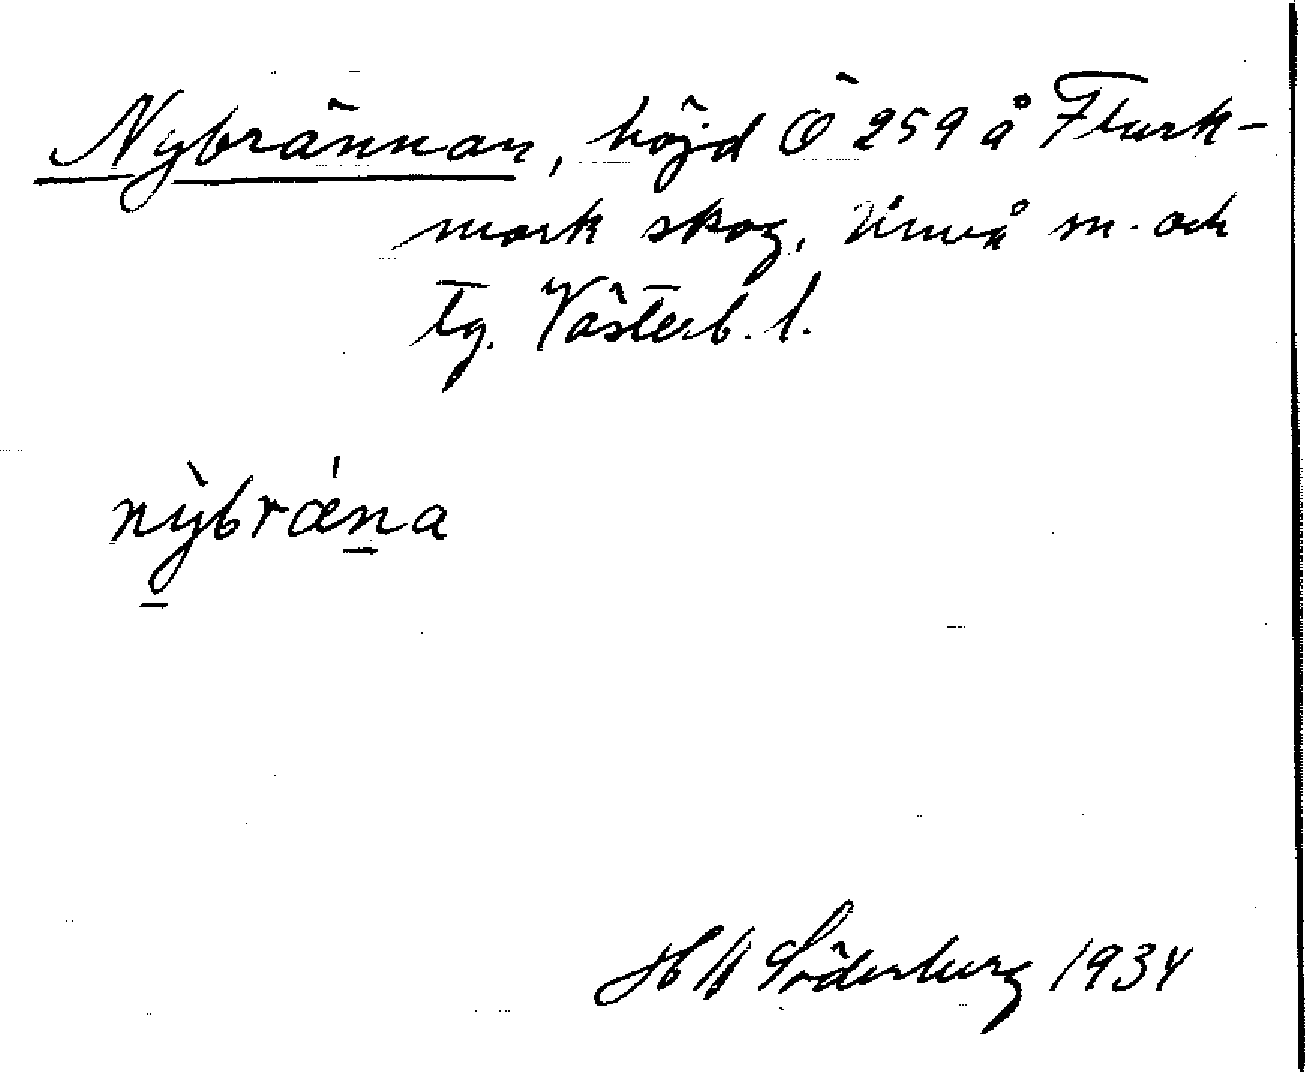 Nybrännan, höjd Ö 259 å Flurk-
mark skog, Umeå m. och
tg. Västerb. l.
nỳbrǽn̠a
H A Söderberg 1934